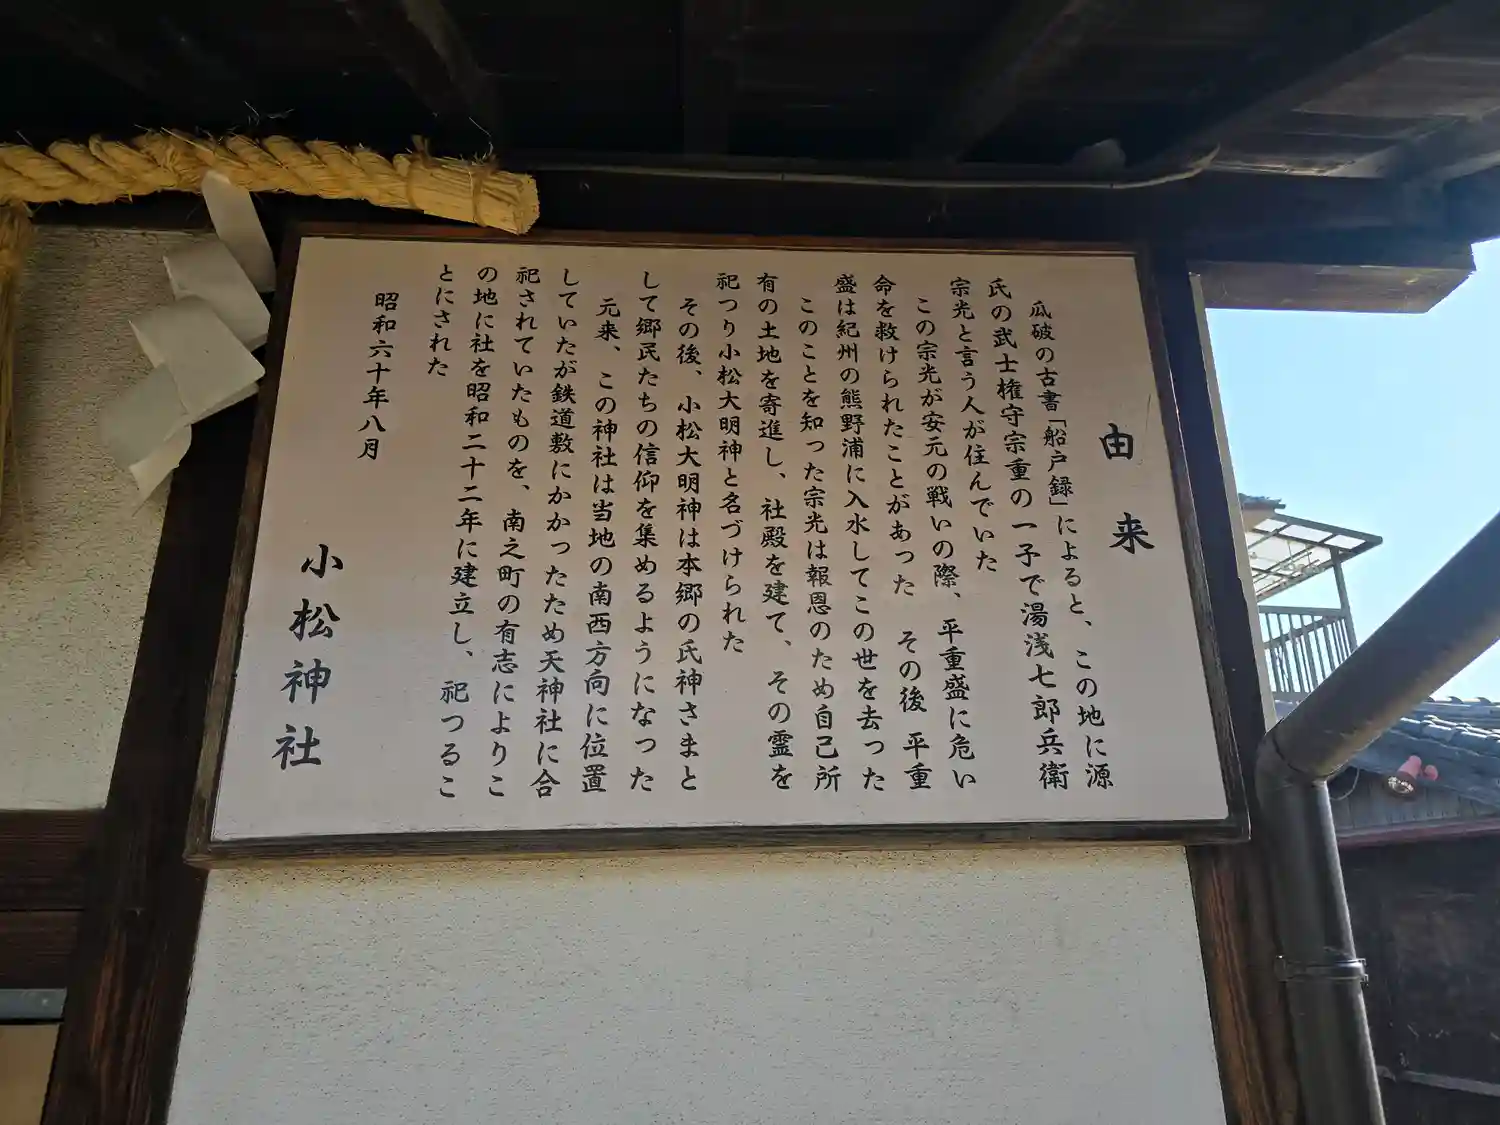 由来
瓜破の古書「船戸録」によると、この地に源
氏の武士権守宗重の一子で湯浅七郎兵衛
宗光と言う人が住んでいた
この宗光が安元の戦いの際、平重盛に危い
命を救けられたことがあった その後 平重
盛は紀州の熊野浦に入水してこの世を去った
このことを知った宗光は報恩のため自己所
有の土地を寄進し、社殿を建て、その霊を
祀つり小松大明神と名づけられた
その後、小松大明神は本郷の氏神さまと
して郷民たちの信仰を集めるようになった
元来、この神社は当地の南西方向に位置
していたが鉄道敷にかかったため天神社に合
祀されていたものを、南之町の有志によりこ
の地に社を昭和二十二年に建立し、祀つるこ
とにされた
昭和六十年八月
小松神社